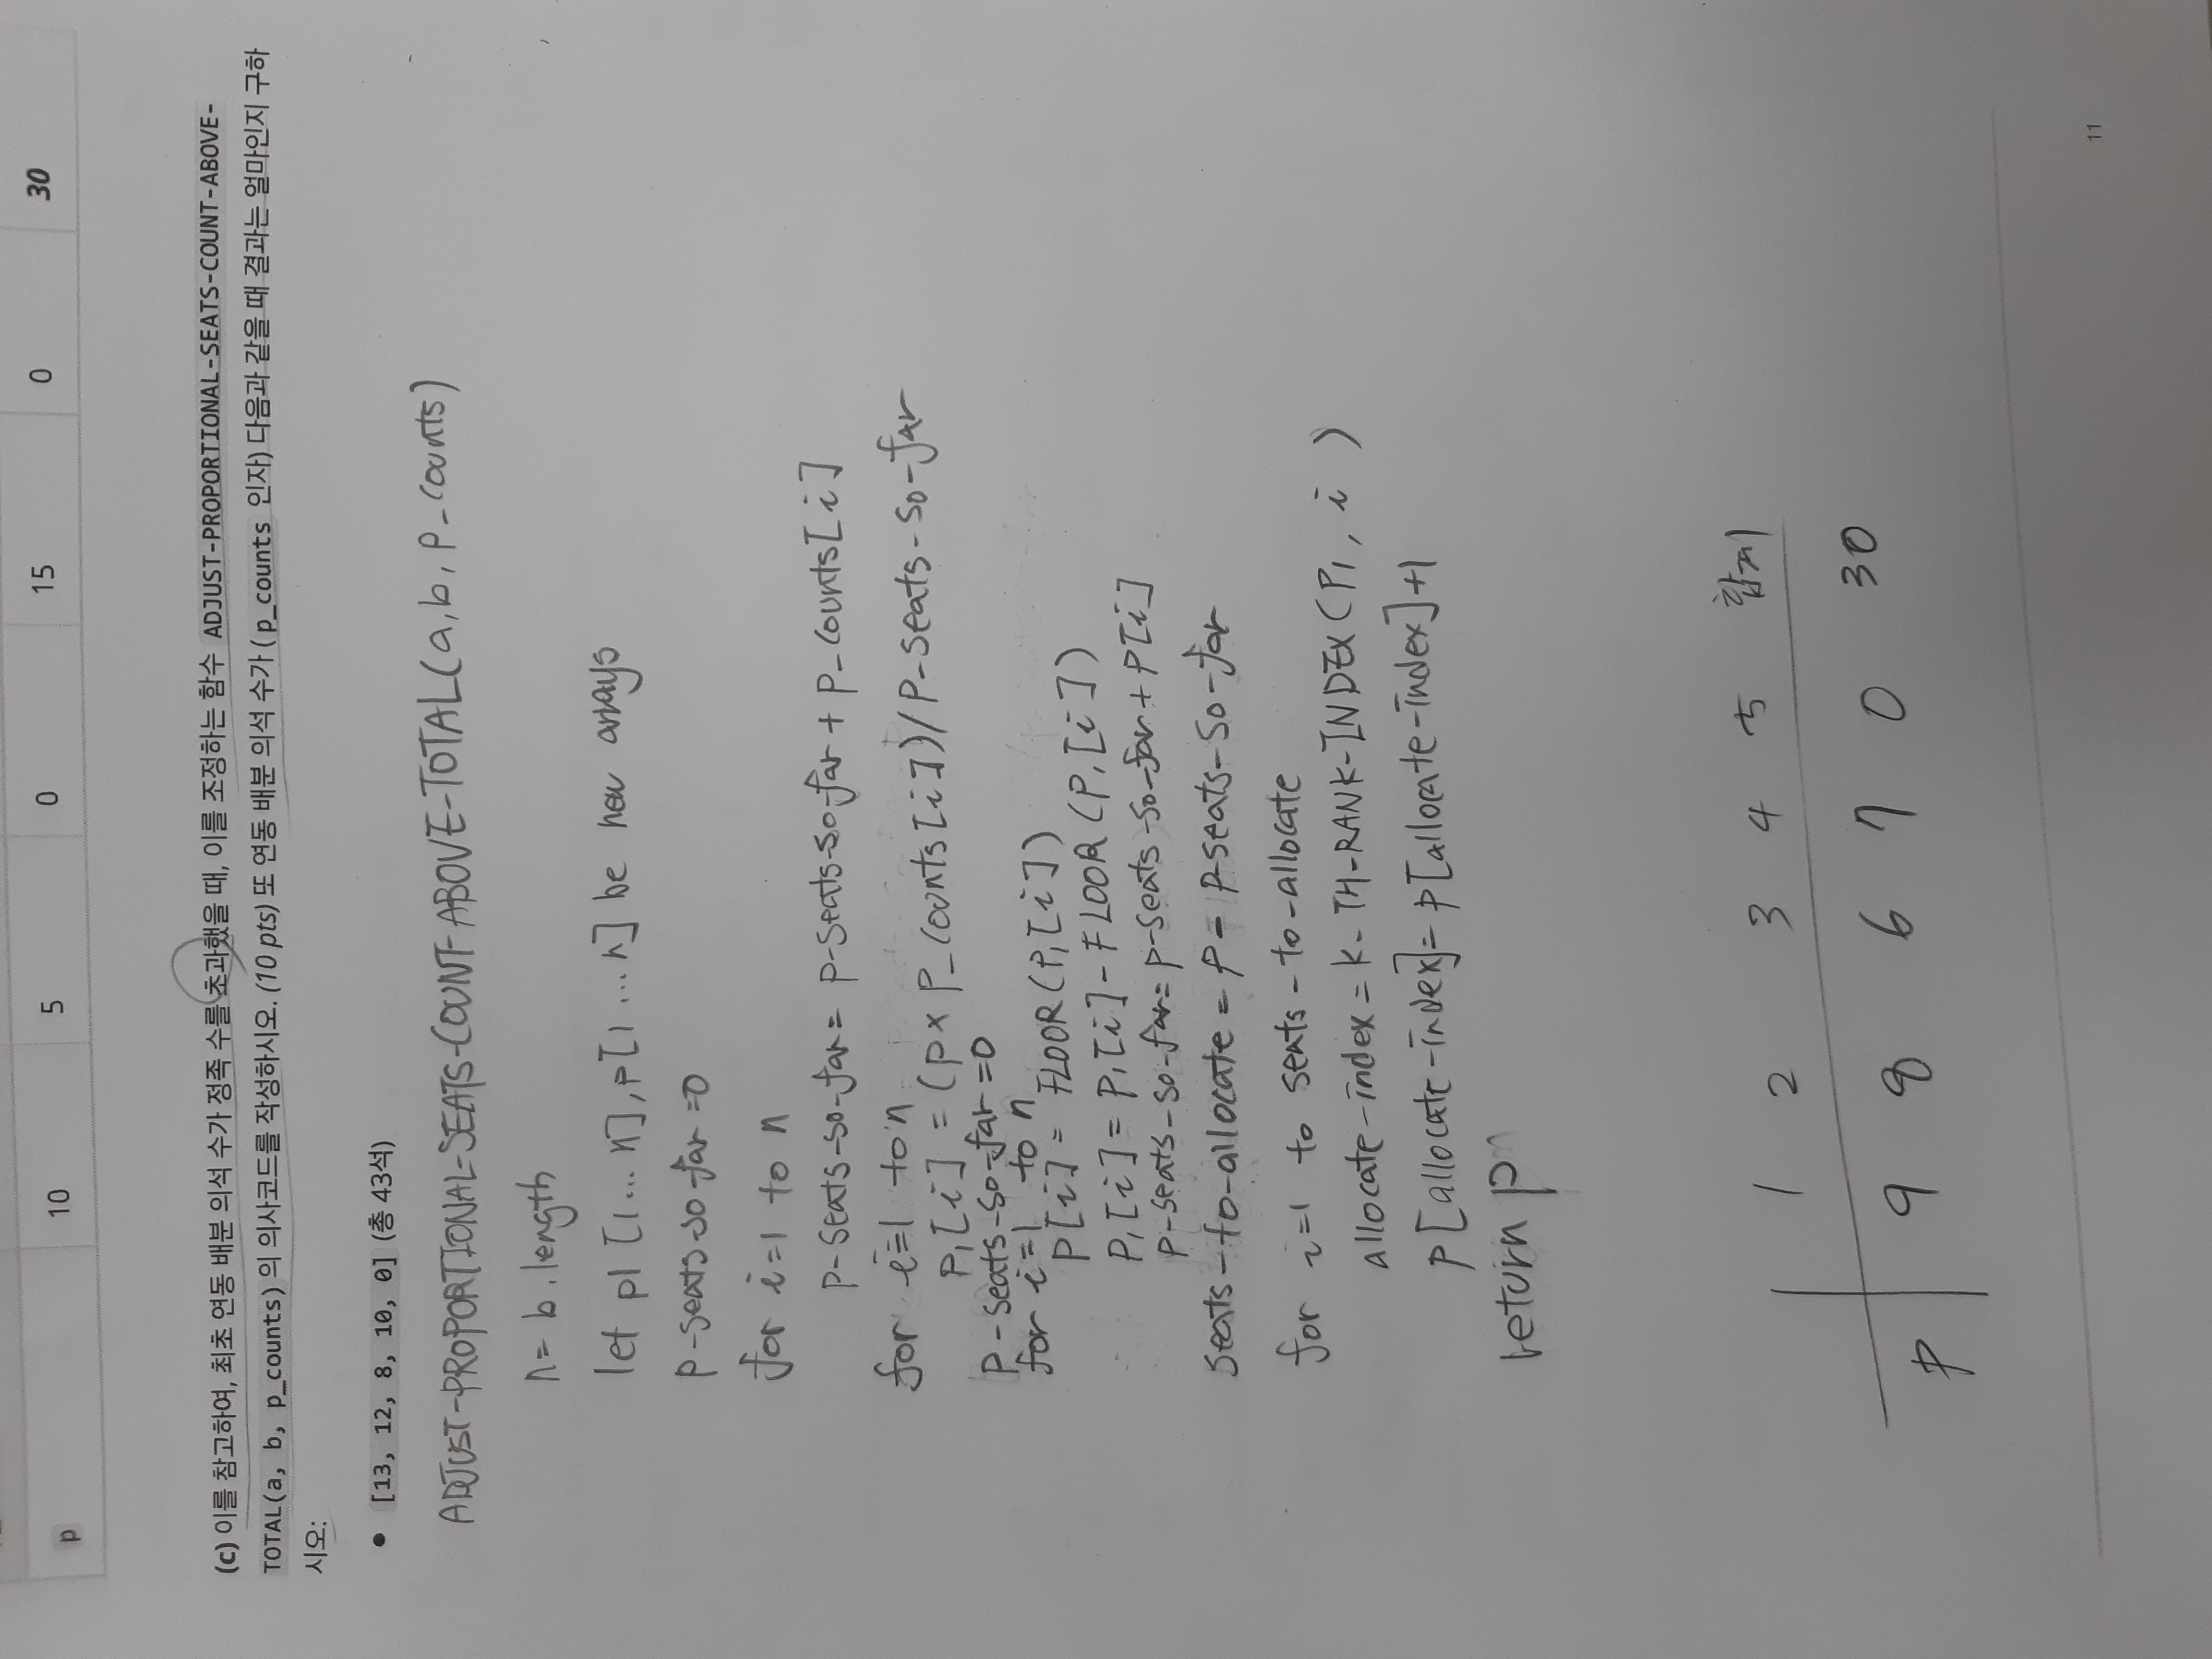 p 10 5 0 15 0 30
(c) 이를 참고하여, 최초 연동 배분 의석 수가 정족 수를 초과했을 때, 이를 조정하는 함수 ADJUST-PROPORTIONAL-SEATS-COUNT-ABOVE-
TOTAL(a, b, p_counts) 의 의사코드를 작성하시오. (10 pts) 또 연동 배분 의석 수가 ( p_counts 인자) 다음과 같을 때 결과는 얼마인지 구하
시오:
• [13, 12, 8, 10, 0] (총 43석)
ADJUST-PROPORTIONAL-SEATS-COUNT-ABOVE-TOTAL(a,b, p_counts)
n= b.length
let p1 [1... n], p[1 ...n] be new arrays
p-seats-so-far =0
for i=1 to n
p-seats-so-far= p-seats-so-far + p_counts[i]
for i=1 to n
p1[i] = (p× p_counts[i])/p-seats-so-far
p-seats-so-far =0
for i=1 to n
p[i] = FLOOR(p1[i])
p1[i] = p1[i]-FLOOR(p1[i])
p-seats-so-far= p-seats-so-far+p[i]
seats-to-allocate = p - p-seats-so-far
for i=1 to seats-to-allocate
allocate-index=K-TH-RANK-INDEX(p1, i )
p[allocate-index]= p[allocate-index]+1
return p
1 2 3 4 5 합계
p 9 8 6 7 0 30
11